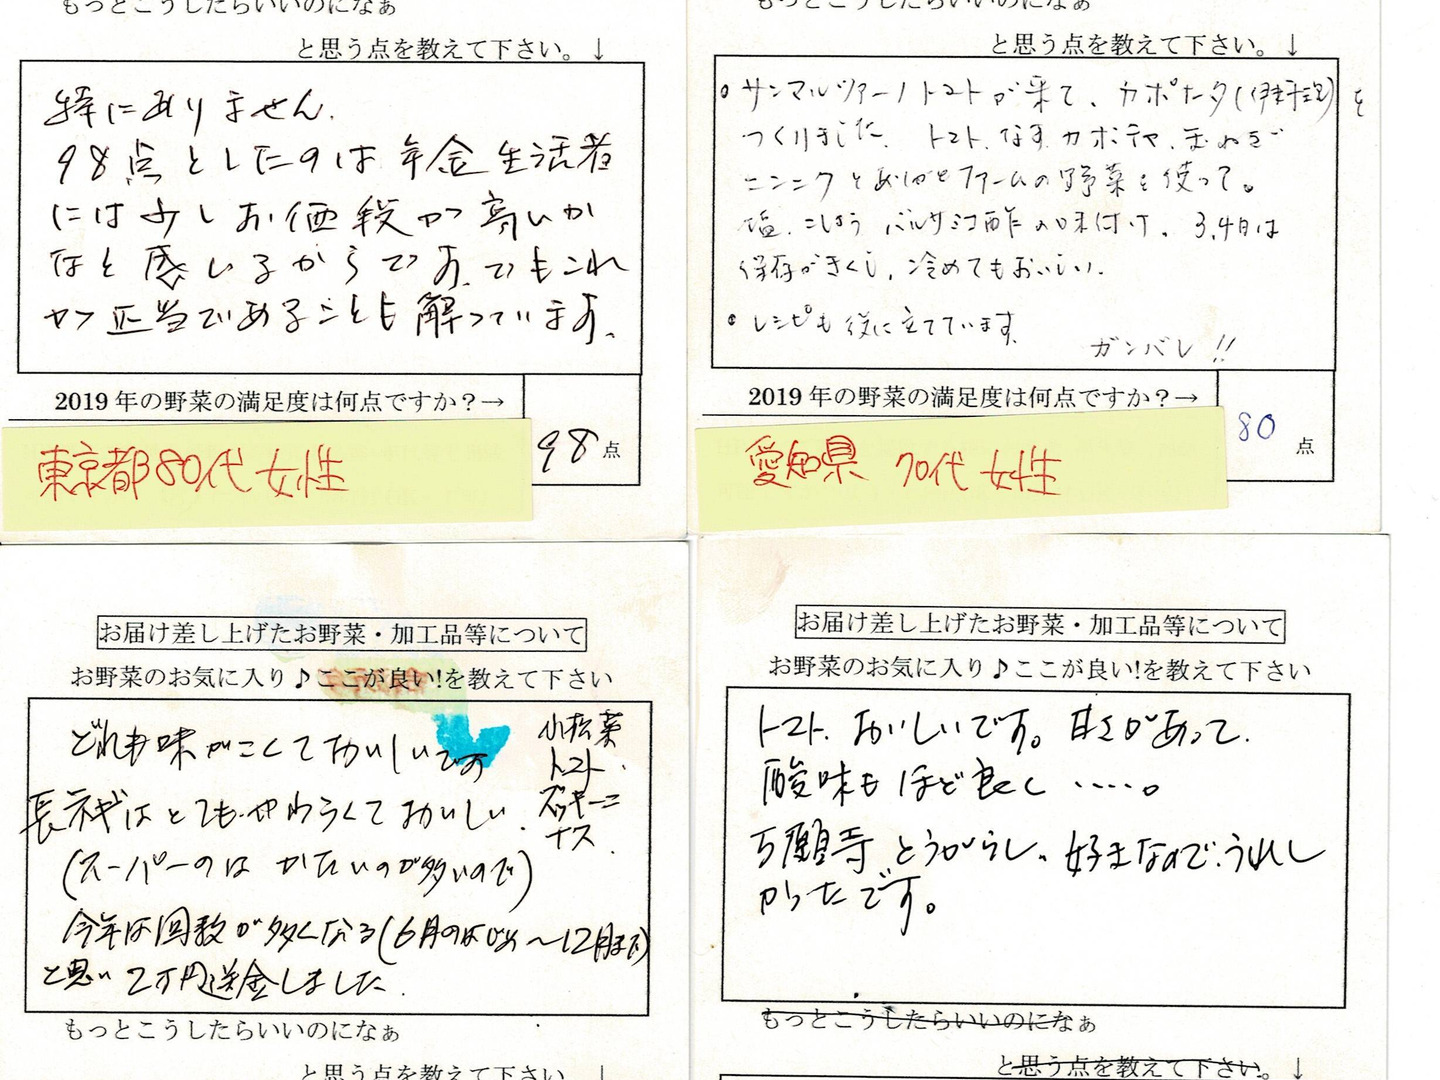 もっとこうしたらいいのになぁ
と思う点を教えて下さい。↓
特にありません.
98点としたのは年金生活者
には少しお価段が高いか
なと感じるからです。でもこれ
が正当であることも解っています。
2019年の野菜の満足度は何点ですか?→
98点
東京都80代女性
もっとこうしたらいいのになぁ
と思う点を教えて下さい。↓
・サンマルツァーノトマトが来て、カポナータ()を
つくりました. トマト.なす.カボチャ.玉ねぎ
ニンニクとファームの野菜を使って。
塩.こしょう バルサミコ酢の味付け。3,4日は
保存がきくし,冷めてもおいしい.
・レシピも役に立てています.
ガンバレ!!
2019年の野菜の満足度は何点ですか?→
80点
愛知県 70代 女性
お届け差し上げたお野菜・加工品等について
お野菜のお気に入り♪ここが良い!を教えて下さい
どれも味がこくておいしいです
小松菜
トマト.
ズッキーニ
ナス.
長ネギはとてもやわらくておいしい.
(スーパーのは かたいのが多いので)
今年は回数が多くなる(6月のはじめ〜12月まで)
と思い 2万円送金しました.
もっとこうしたらいいのになぁ
と思う点を教えて下さい。↓
お届け差し上げたお野菜・加工品等について
お野菜のお気に入り♪ここが良い!を教えて下さい
トマト.おいしいです。甘さがあって.
酸味もほど良く…..。
万願寺とうがらし、好きなので.うれし
かったです。
もっとこうしたらいいのになぁ
と思う点を教えて下さい。↓